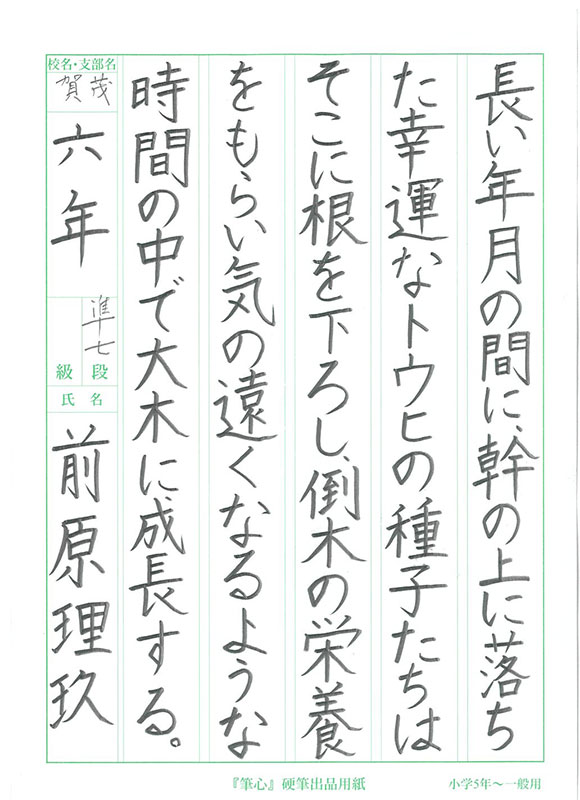 長い年月の間に、幹の上に落ち
た幸運なトウヒの種子たちは
そこに根を下ろし、倒木の栄養
をもらい気の遠くなるような
時間の中で大木に成長する。
校名・支部名
賀茂
六年
準七
級 段
氏 名
前原理玖
『筆心』硬筆出品用紙
小学5年〜一般用